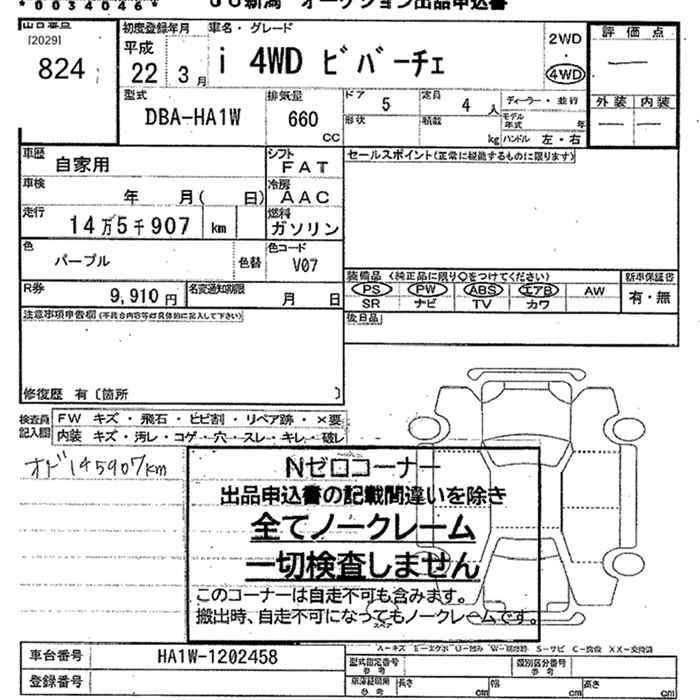 *0034046* JU新潟 オークション出品申込書
出品番号
[2029]
824
初度登録年月
平成
22 3月
車名・グレード
i 4WD ビバーチェ
2WD
・
4WD
評価点
外装 内装
型式
DBA-HA1W
排気量
660
CC
ドア 5
定員 4 人
形状
積載 kg
ディーラー・並行
モデル年式 年
ハンドル 左・右
車歴
自家用
シフト
FAT
セールスポイント(正常に機能するものに限ります)
車検
年 月( 日)
冷房
AAC
走行
14万5千907 km
燃料
ガソリン
色
パープル
色替
色コード
V07
装備品 (純正品に限り○をつけてください)
PS PW ABS エアB AW
SR ナビ TV カワ
新車保証書
有・無
R券
9,910円
名変通知期限
月 日
後日品
注意事項申告欄(不具合内容等は具体的に記入して下さい)
修復歴 有〔箇所 〕
検査員
記入欄
FW キズ・飛石・ヒビ割・リペア跡・×要
内装 キズ・汚レ・コゲ・穴・スレ・キレ・破レ
オド145907km
Nゼロコーナー
出品申込書の記載間違いを除き
全てノークレーム
一切検査しません
このコーナーは自走不可も含みます。
搬出時、自走不可になってもノークレームです。
スペア
A-キズ E-エクボ U-凹み W-補修跡 S-サビ C-腐食 XX-交換済
車台番号 HA1W-1202458
登録番号
型式指定番号
参考
類別区分番号
参考
車庫証明用
参考
長さ cm
幅 cm
高さ cm